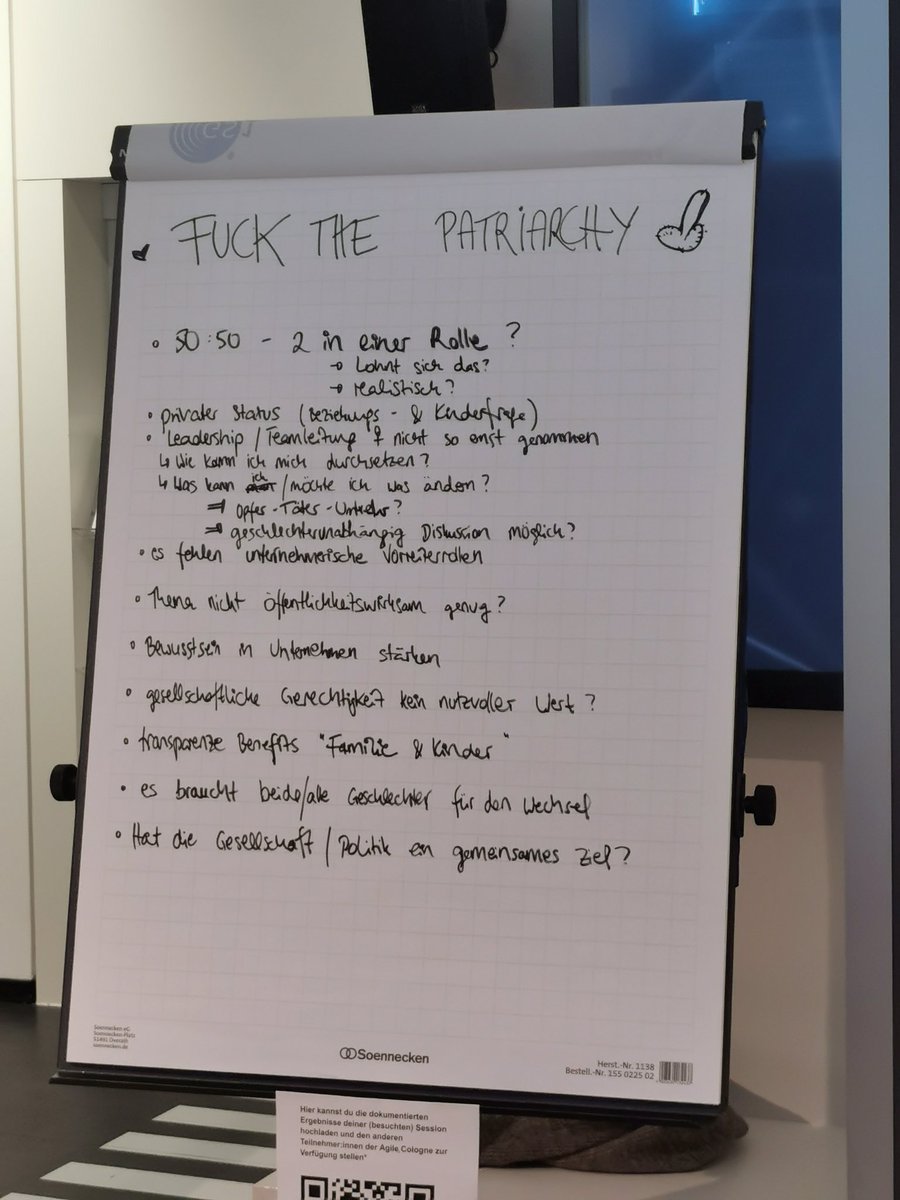 FUCK THE PATRIARCHY
50:50 - 2 in einer Rolle?
→ Lohnt sich das?
→ realistisch?
• privater Status (Beziehungs- & Kinderfrage)
• Leadership / Teamleitung ♀ nicht so ernst genommen
↳ Wie kann ich mich durchsetzen?
↳ Was kann ich /möchte ich was ändern?
⇒ Opfer-Täter-Umkehr?
⇒ geschlechterunabhängig Diskussion möglich?
• es fehlen unternehmerische Vorreiterrollen
• Thema nicht öffentlichkeitswirksam genug?
• Bewusstsein in Unternehmen stärken
• gesellschaftliche Gerechtigkeit kein nutzvoller Wert?
• transparenze Benefits "Familie & Kinder"
• es braucht beide/alle Geschlechter für den Wechsel
• Hat die Gesellschaft / Politik ein gemeinsames Ziel?
Soennecken eG
Soennecken-Platz
51491 Overath
soennecken.de
Soennecken
Herst.-Nr. 1138
Bestell.-Nr. 155 0225 02
Hier kannst du die dokumentierten
Ergebnisse deiner (besuchten) Session
hochladen und den anderen
Teilnehmer:innen der Agile.Cologne zur
Verfügung stellen*